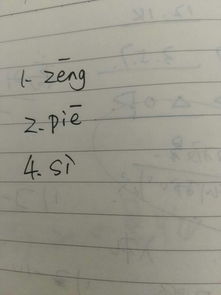 1. zēng
2. piē
4. sì